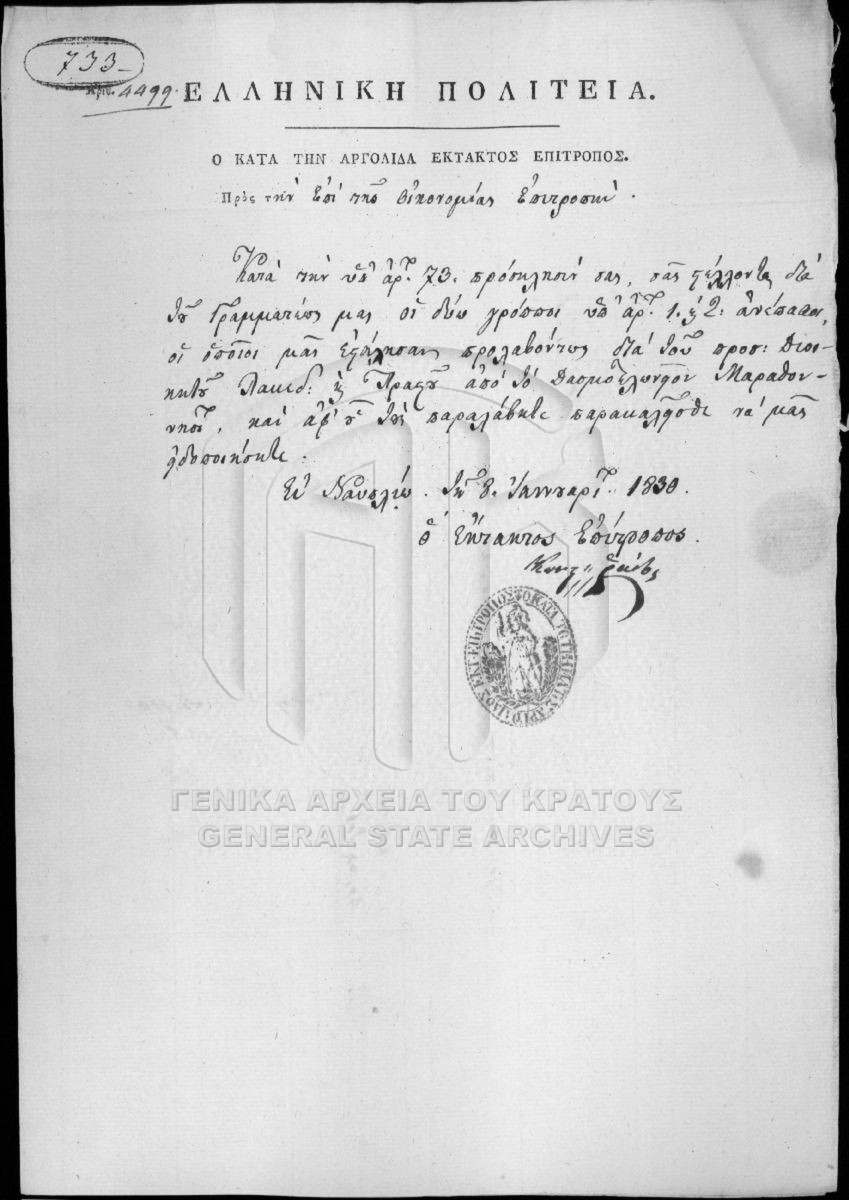 733
Αριθ. 4499.
ΕΛΛΗΝΙΚΗ ΠΟΛΙΤΕΙΑ.
Ο ΚΑΤΑ ΤΗΝ ΑΡΓΟΛΙΔΑ ΕΚΤΑΚΤΟΣ ΕΠΙΤΡΟΠΟΣ.
Πρὸς τὴν ἐπὶ τῆς Οἰκονομίας Ἐπιτροπήν.
Κατὰ τὴν ὑπ' ἀρ. 73. πρόσκλησίν σας, σᾶς στέλλονται διὰ
τοῦ Γραμματέως μας οἱ δύω γρόπποι ὑπ' ἀρ. 1. ϗ 2. ἀνέπαφοι,
οἱ ὁποῖοι μᾶς ἐστάλησαν προλαβόντως διὰ τοῦ προσ: Διοι-
κητοῦ Λακεδ: ϗ ἀπὸ τὸ Δασμοτελωνεῖον Μαραθον-
νησίου, καὶ ἀφ' οὗ τοὺς παραλάβητε παρακαλεῖσθε νὰ μᾶς
εἰδοποιήσητε.
Ἐν Ναυπλίῳ τῇ 8. Ἰαννουαρίου 1830.
Ὁ Ἔκτακτος Ἐπίτροπος.
ΓΕΝΙΚΑ ΑΡΧΕΙΑ ΤΟΥ ΚΡΑΤΟΥΣ
GENERAL STATE ARCHIVES